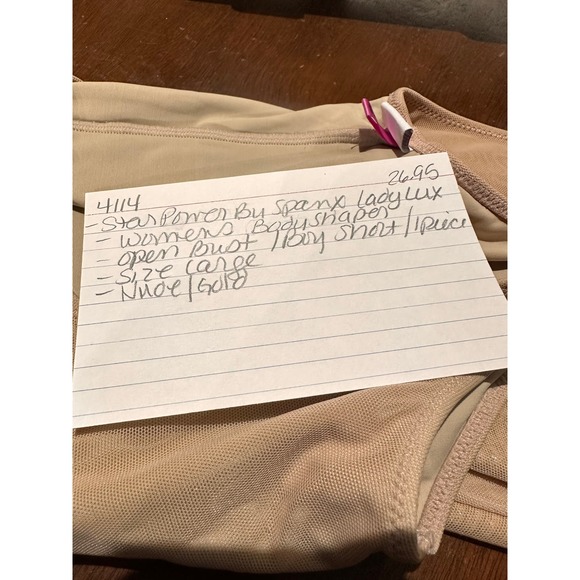 4114 26.95
- Star Power By Spanx Lady Lux
- Womens Bodyshaper
- Open Bust / Boy Short / 1 piece
- Size Large
- Nude / Gold